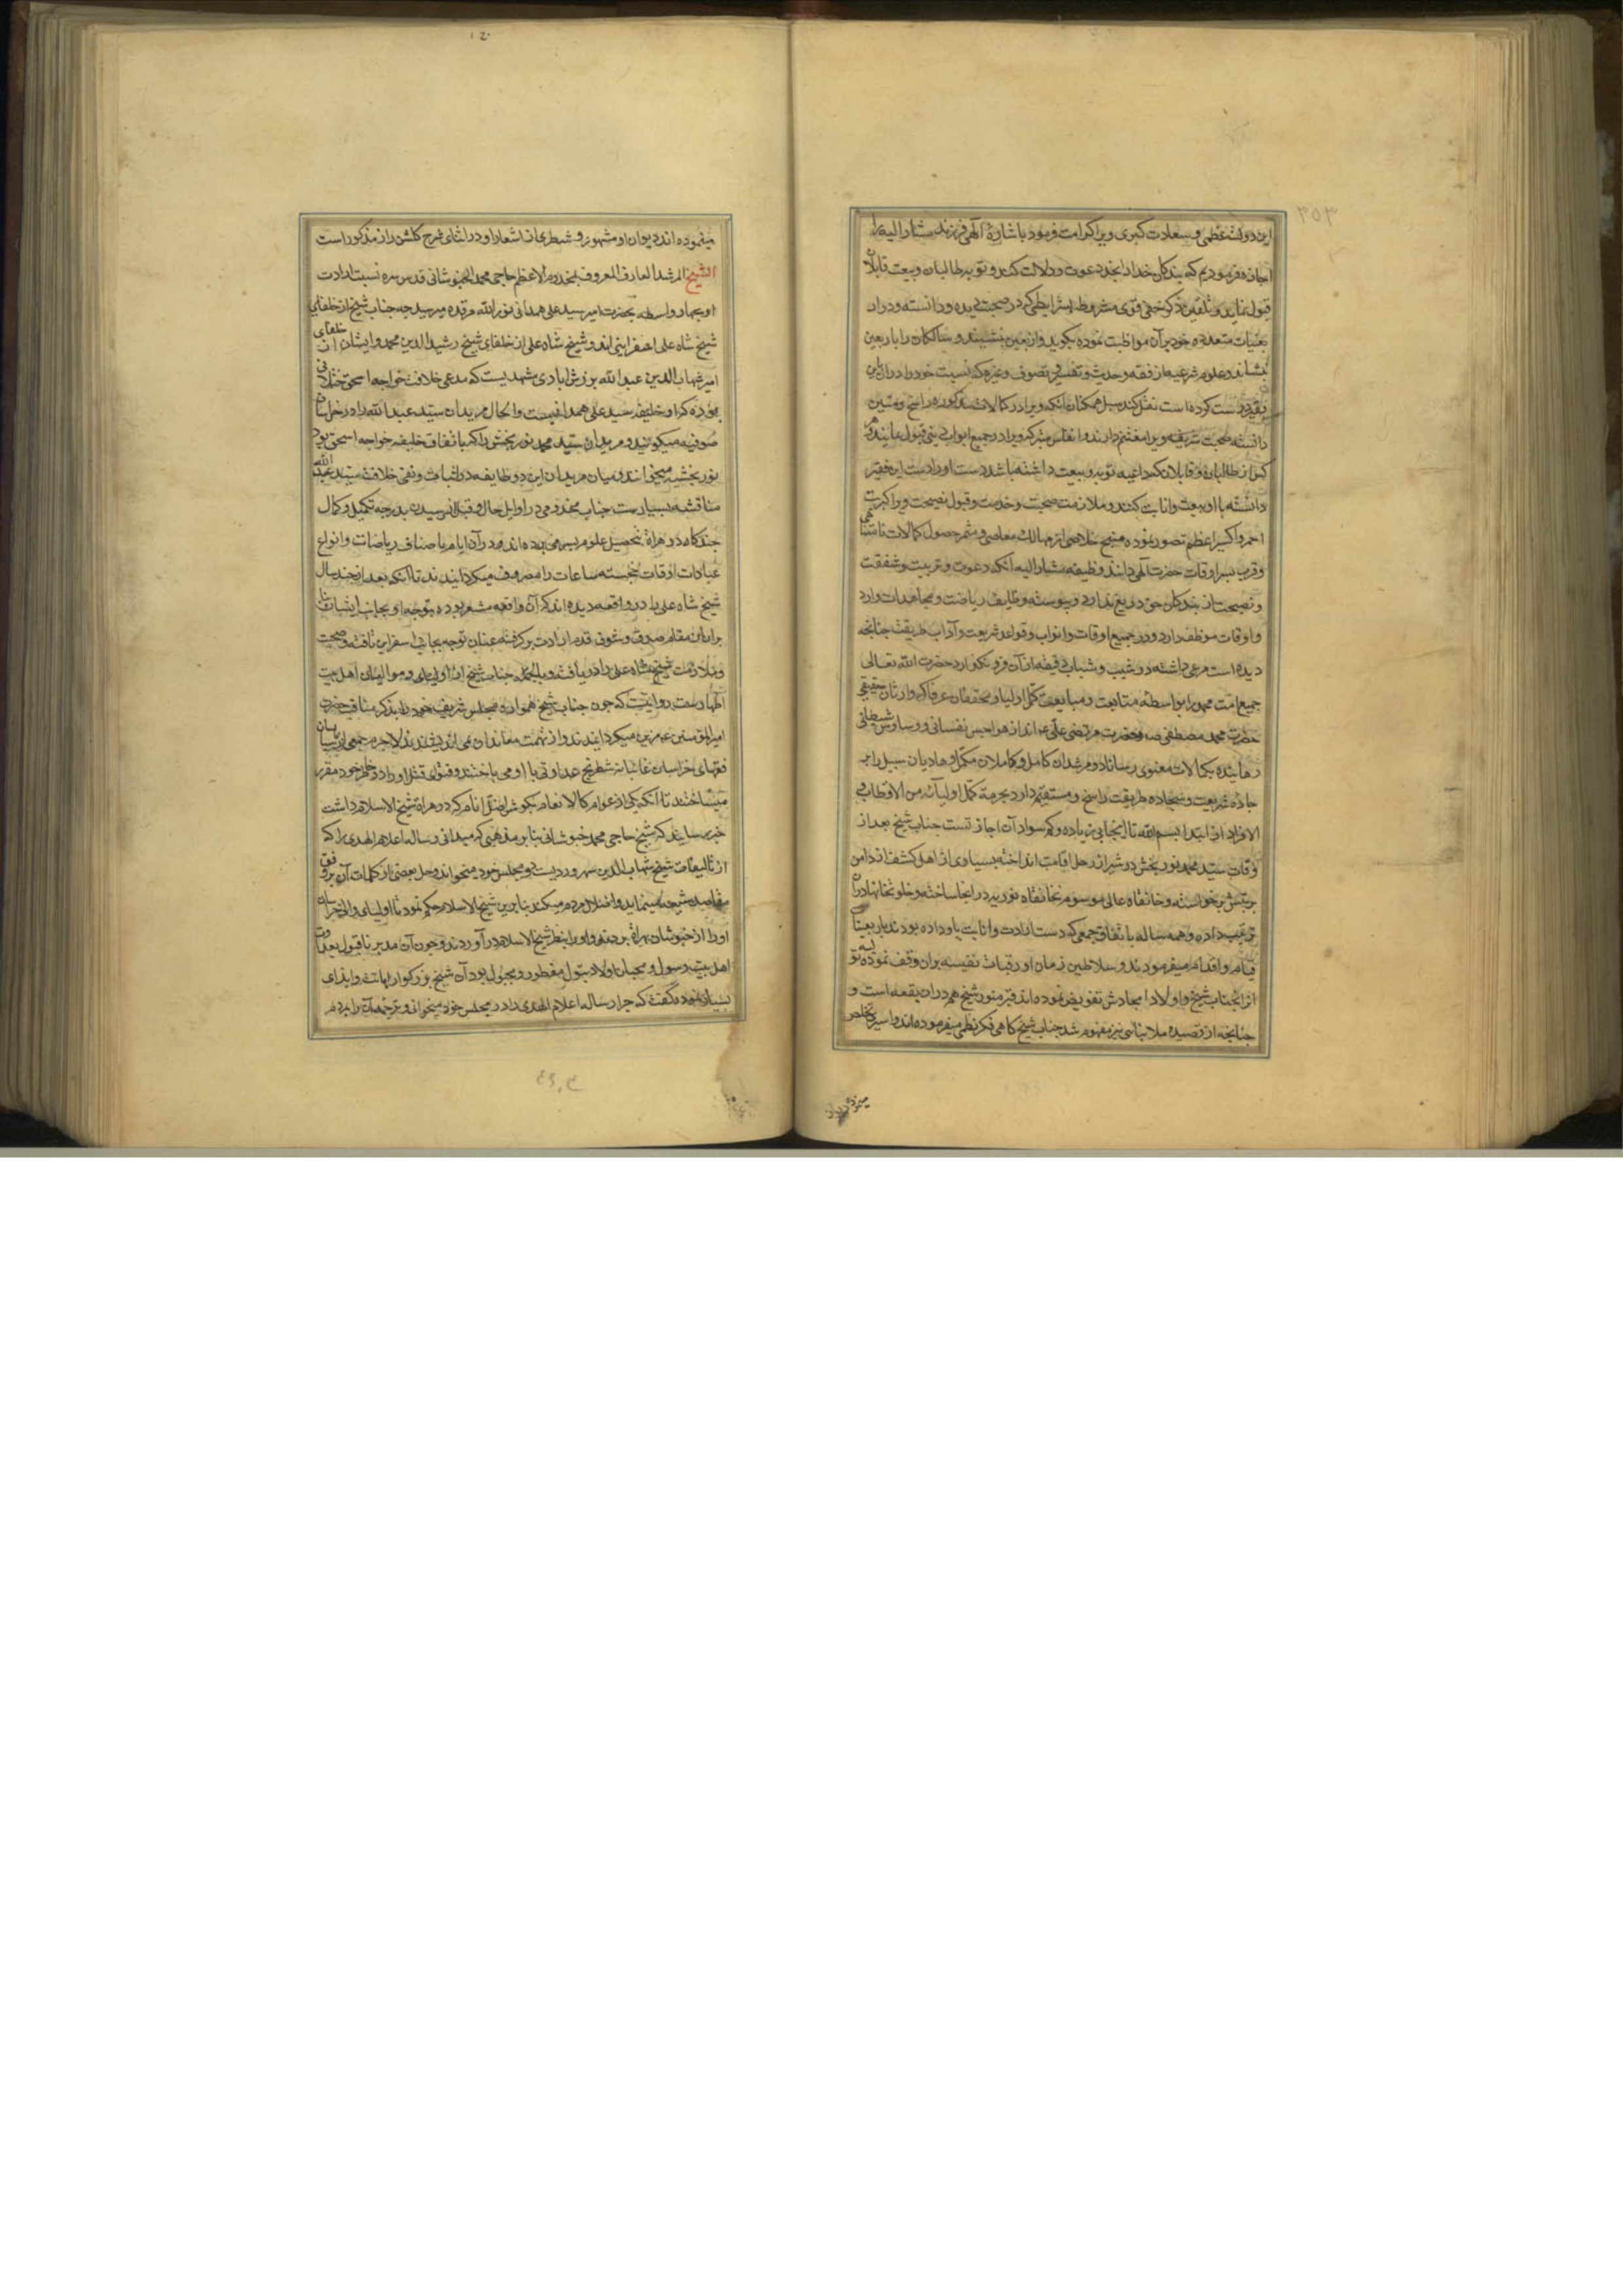 ۳۵۳
این دولت عظمی و سعادت کبری ویرا کرامت فرمود باشارهٔ آلهی فرزند مشار الیه را
اجازه فرمودیم که بندکان خدا را بخدا دعوت و دلالت کند و توبهٔ طالبان و بیعت قابلان
قبول نماید و تلقین ذکر خفی قوی مشروط بشرایطی که در صحبت دیده و دانسته و در اربعینات
متعدده خود بر آن مواظبت نموده بکوید و اربعین بنشیند و سالکان را باربعین
بنشاند و علوم شرعیه از فقه و حدیث و تفسیر و تصوف و غیره که نسبت خود را در آن باین
فقیر درست کرده است نقل کند سبیل همکنان آنکه ویرا در کمالات مذکوره راسخ و متین
دانسته صحبت شریفه ویرا مغتنم دارند و انفاس متبرکه ویرا در جمیع ابواب دینی قبول نمایند و هر
کس از طالبان و قابلان که داعیه توبه و بیعت داشته باشد دست او را دست این فقیر
دانسته با او بیعت و انابت کنند و ملازمت صحبت و خدمت و قبول نصیحت ویرا کبریت
احمر و اکسیر اعظم تصور نموده منتج خلاصی از مهالک معاصی و مثمر حصول کمالات نامتناهی
و قرب سرا وقات حضرت آلهی دانند و وظیفه مشار الیه آنکه دعوت و تربیت و شفقت
و نصیحت از بندکان حق دریغ ندارد و پیوسته وظایف ریاضت و مجاهدات و اراد
و اوقات موظف دارد و در جمیع اوقات و ابواب و قواعد شریعت و آداب طریقت چنانچه
دیده است مرعی داشته در شیب و شباب دقیقه از آن فرو نکذارد حضرت الله تعالی
جمیع امت محمد را بواسطهٔ متابعت و مبایعت کمل اولیا و محققان عرفا که وارثان حقیقی
حضرت محمد مصطفی ص و حضرت مرتضی علی‌ع اند از هواجس نفسانی و وساوس شیطانی
رهانیده بکمالات معنوی رساناد و مرشدان کامل و کاملان مکمل و هادیان سبیل را بر
جادهٔ شریعت و سجادهٔ طریقت راسخ و مستقیم داراد بحرمة کمل اولیآئه من الاقطاب و
الافراد از ابتداء بسم الله تا اینجا بی زیاده و کم سواد آن اجازتست جناب شیخ بعد از
وفات سید محمد نوربخش در شیراز رحل اقامت انداخته بسیاری از اهل کشف از دامن
تربیتش برخواسته و خانقاه عالی موسوم بخانقاه نوریه در انجا ساخته و خلوتخانها در آن
ترتیب داده و همه ساله باتفاق جمعی که دست ارادت و انابت باو داده بودند باربعینات
قیام و اقدام میفرمودند و سلاطین زمان اورقبات نفیسه بران وقف نموده تولیه
آنرا بجناب شیخ و اولاد امجادش تفویض نموده اند قبر منور شیخ هم دران بقعه است و
چنانچه از قصیدهٔ ملا بنائی نیز مفهوم شد جناب شیخ کاهی فکر نظمی میفرموده اند و اسیری تخلص
مینموده
مینموده اند دیوان او مشهور و شطری از اشعار او در اثنای شرح کلشن راز مذکور است
الشیخ المرشد العارف المعروف بمخدوم الاعظم حاجی محمد الخبوشانی قدس سره نسبت ارادت
او بچهار واسطه بحضرت امیر سید علی همدانی نور الله مرقده میرسد چه جناب شیخ از خلفای
شیخ شاه علی اسفراینی اند و شیخ شاه علی از خلفای شیخ رشید الدین محمد و ایشان از خلفای
امیر شهاب الدین عبد الله بزرش ابادی مشهدیست که مدعی خلافت خواجه اسحق ختلانی
بوده که او خلیفه سید علی همدانیست و الحال مریدان سید عبد الله را در خراسان
صوفیه میکویند و مریدان سید محمد نوربخش را که باتفاق خلیفه خواجه اسحق بود
نوربخشیه میخوانند و میان مریدان این دو طایفه در اثبات و نفی خلافت سید عبد الله
مناقشه بسیارست جناب مخدومی در اوایل حال و قبل از رسیدن بدرجه تکمیل و کمال
چندکاه در هراة بتحصیل علوم بسر می برده اند و در آن ایام باصناف ریاضات و انواع
عبادات اوقات خجسته ساعات را مصروف میکردانیدند تا آنکه بعد از چند سال
شیخ شاه علی را در واقعه دیده اند که آن واقعه مشعر بوده بتوجه او بجانب ایشان بنا
بران از مقام صدق و شوق قدم ارادت برکرفته عنان توجه بجانب اسفراین تافته و صحبت
و ملازمت شیخ شاه علی را دریافته و بالجمله جناب شیخ از اولیای و موالیان اهل بیت
اطهارست روایتست که چون جناب شیخ همواره مجلس شریف خود را بذکر مناقب حضرت
امیر المؤمنین ع مزین میکردانیدند و از تهمت معاندان نمی اندیشیدند لاجرم جمعی از سنیان
فقهای خراسان غائبانه شطرنج عداوتی با او می باختند و فتوای قتل او را در خاطر خود مقرر
میساختند تا آنکه یکی از عوام کالانعام بکوش اضل انام که در هراة شیخ الاسلام داشت
خبر رسانید که شیخ حاجی محمد خبوشانی بنابر مذهبی که میدانی رساله اعلام الهدی را که
از تالیفات شیخ شهاب الدین سهروردیست در مجلس خود میخواند و حل بعضی از کلمات آن بر وفق
مقاصد شیعه مینماید و اضلال مردم میکند بنابرین شیخ الاسلام حکم نمود تا اولیای والی خراسان
او را از خبوشان بهراة بردند و او را بنظر شیخ الاسلام درآوردند و چون آن مدبر ناقبول بعداوت
اهل بیت رسول و محبان اولاد بتول مفطور و مجبول بود آن شیخ بزرکوار اهانت و ایذای
بسیار نموده گفت که چرا رساله اعلام الهدی را در مجلس خود میخوانی و ترجمه آن را بمردم